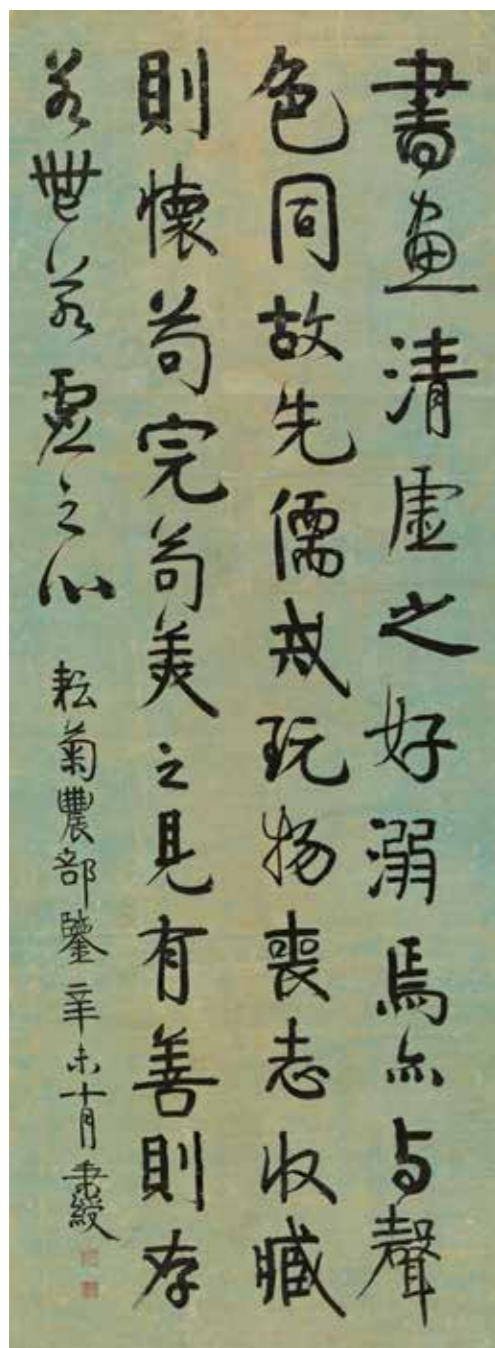 書畫清虛之好溺焉亦与聲
色同故先儒戒玩物喪志收臧
則懷苟完苟美之見有善則存
若無若虛之心 耘菊農部鑒辛未十月秉綬